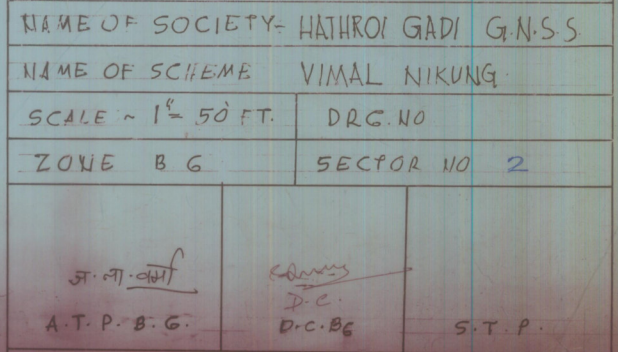 NAME OF SOCIETY- HATHROI GADI G.N.S.S.
NAME OF SCHEME VIMAL NIKUNG
SCALE ~ 1"= 50 FT. DRG. NO
ZONE B G SECTOR NO 2
ज. ला. वर्मा
D.C.
A.T.P. B.G. D.C.BG S.T.P.